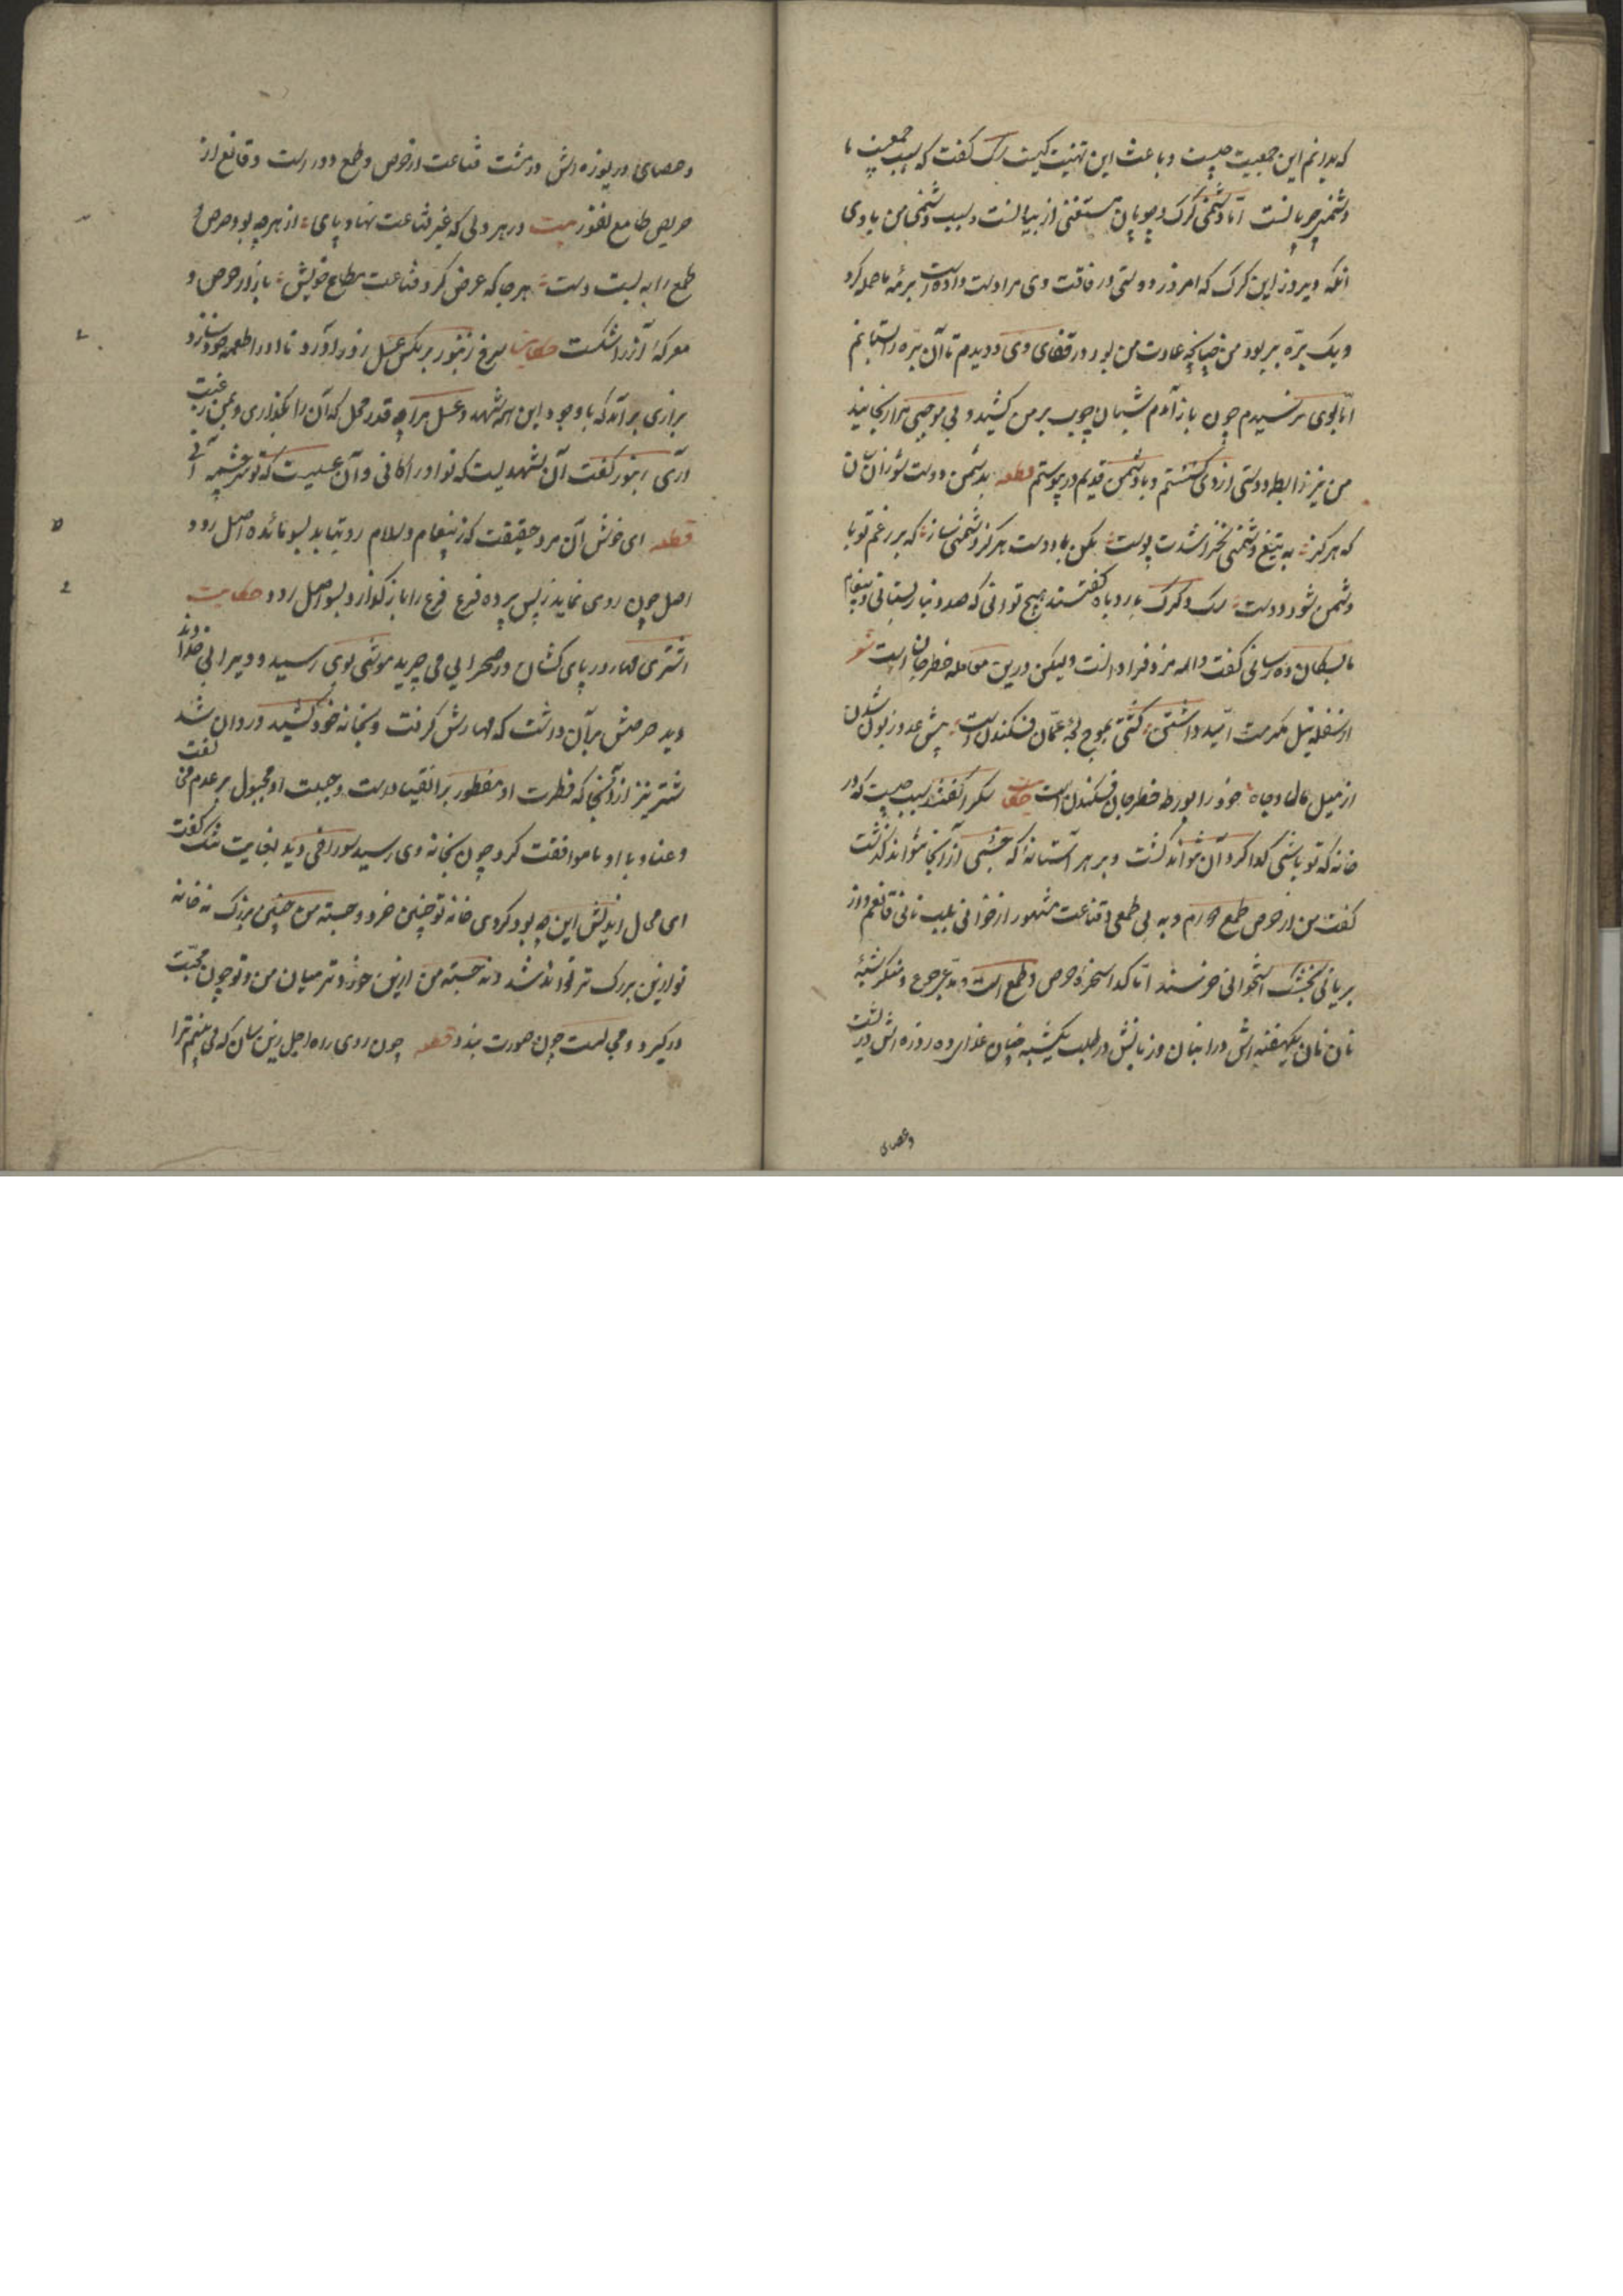 که بدانم این جمعیت چیست و باعث این تهنیت کیست سک کفت که سبب جمعیت ما
دشمنی چوپانست اما دشمنی کرک و چوپان مستغنی از بیانست و سبب دشمنی من با وی
انکه دیروز این کرک که امروز دوستی در فاقت وی مرا دست داده است بر رمه ما حمله کرد
و یک بره بربود من چنانچه عادت من بود در قفای وی دویدم تا آن بره را بستانم
اما بوی نرسیدم چون باز آمدم شبان چوب بر من کشید و بی موجبی مرا رنجانید
من نیز رابطه دوستی از وی کسستم و با دشمن قدیم در پیوستم قطعه بدشمن دوست شو زان سان
که هرکز به تیغ دشمنی نخراشدت پوست مکن با دوست هرکز دشمنی ساز که بر رغم تو با
دشمن شود دوست سک و کرک با روباه کفتند هیچ توانی که صد دینار بستانی و پیغام
ما بسکان ده رسانی کفت والله مزد فراوانست ولیکن درین معامله خطر جان است شعر
از سفله نیل مکرمت امید داشتن کشتی بموج لجه عمان فکندن است پیش عدو زبون شدن
از میل مال و جاه خود را بورطه خطر جان فکندن است حکایت سک را کفتند سبب چیست که در
خانه که تو باشی کدا کرد آن نتواند کشت و بر هر آستانه که خسبی از آنجا نتواند کذشت
کفت من از حرص و طمع دورم و به بی طمعی و قناعت مشهور از خوانی بلب نانی قانعم و از
بریانی بخشک استخوانی خرسند اما کدا سخره حرص و طمع است و مدعی جوع و منکر شبع
نان یکهفته اش در انبان و زبانش در طلب نان یکشبه جنبان غذای ده روزه اش در پشت
و عصای
و عصای دریوزه اش در مشت قناعت از حرص و طمع دور است و قانع از
حریص طامع نفور بیت در هر دلی که عز قناعت نهاد پای از هر چه بود حرص و
طمع را به بست دست هر جا که عرض کرد قناعت متاع خویش بازار حرص و
معرکه آز را شکست حکایت سرخ زنبور بر مکس عسل زور آورد تا او را طعمه خود سازد
بزاری برآمد که با وجود این همه شهد و عسل مرا چه قدر و محل که آن را بکذاری و بمن رغبت
آری زنبور کفت آن شهدیست که تو او را کانی و آن عسلیست که تو سرچشمه آنی
قطعه ای خوش آن مرد حقیقت که ز پیغام و سلام رو بتابد بسو مائده اصل رود
اصل چون روی نماید ز پس پرده فرع فرع را باز کذارد بسو اصل رود حکایت
اشتری مهار در پای کشان در صحرایی می چرید موشی بوی رسید و ویرا بی خداوند
دید حرصش بر آن داشت که مهارش کرفت و بخانه خود کشید و روان شد
شتر نیز از آنجا که فطرت او مفطور بر انقیادست و جبلت او مجبول بر عدم مخالفت
و عناد با او موافقت کرد چون بخانه وی رسید سوراخی دید بغایت تنک کفت
ای محال اندیش این چه بود کردی خانه تو چنین خرد و جسته من چنین بزرک نه خانه
تو ازین بزرک تر تواند شد و نه جسته من ازین خردتر میان من و تو چون محبت
درکیرد و مجالست چون صورت بندد قطعه چون روی راه اجل زین سان که می بینم ترا